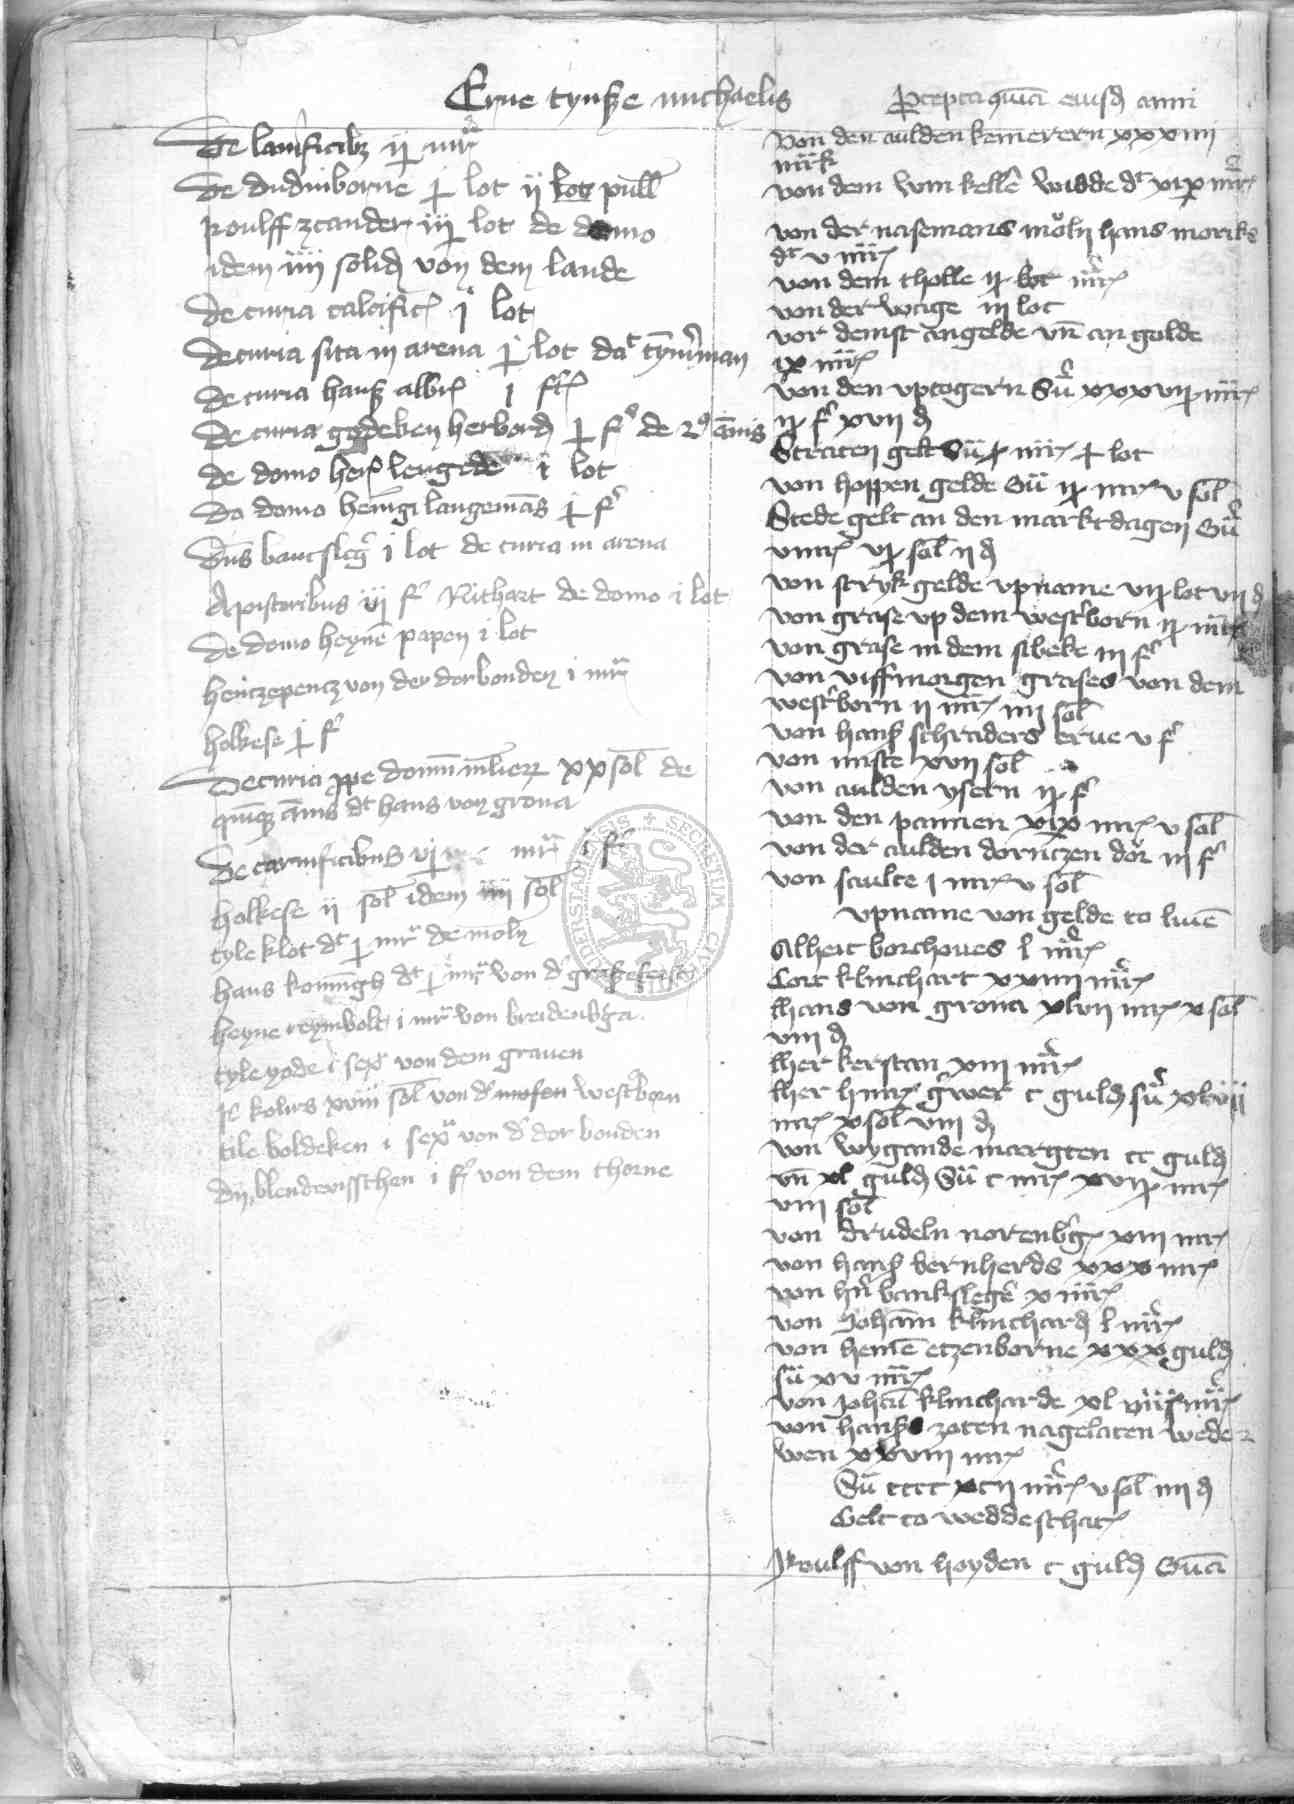 Erve tynsze michaelis
De lanificibz ij mr
De dudenborne j lot ij lot pull
roulff zcander iij lot de domo
idem iiij solid von dem lande
De curia calcific j lot
De curia sita in arena j lot dat tymerman
De curia hansz albi j f
De curia godeken herbord j f de annis
de domo heis lengede i lot
Da domo hennigi langemans j f
Dns bantsleg i lot de curia in arena
A pistoribus iij f Rithart de domo i lot
De domo heyne papen i lot
von der dorbonden i mr
holkese j f
De curia xx sol de
annis dt hans von grona
De carnificibus vj mr i f
holkese ij sol idem iiij sol
tyle klot dt j mr de moln
hans konnigh dt j mr von d
heyne reymbolt i mr von breidenbga
tyle yode i sex von dem graven
kolirs xviij sol von d westborn
tile boldeken i sex von d dor bonden
blendevisschen i f von dem thorne
Percepta eiusd anni
Von den aulden kemerern xxxiiij
mrk
von dem win kelle widde dt xix mr
von der nasemans moln hans moriks
dt v mr
von dem tholle ij lot mr
von der wage iij lot
vor deinst angelde vn an golde
ix mr
von den vptogern Su xxxvij mr
ij f xvij d
Straten gelt Su mr lot
von hoppen gelde Su ij mr v sol
Stede gelt an den marktdagen Su
vj sol ij d
von stryk gelde vpname vij lot vij d
von grase vp dem westborn ij mr
von grase in dem sibeke iij f
von viffmorgen grases von dem
westborn ij mr iiij sol
von hansz schraders erve v f
von miste xvij sol
von aulden ysern ij f
von den pannen xix mr v sol
von der aulden dorntzen dor iij f
von sculte i mr v sol
vpname von gelde to live
Alheit borchoves l mr
Cort klinchart xxiiij mr
Hans von grona xlvij mr x sol
viij d
Her kerstan xiij mr
Her gwer c guld su xlvij
mr x sol viij d
von wygande margten cc guld
vn xl guld Su c mr xvij mr
viij sol
von drudeln nortenbg xiij mr
von hansz bernherds xxx mr
von hn bankslege x mr
von Johann klinchard l mr
von henne etzenborne xxx guld
su xv mr
von Johan klincharde xl mr
von hansz zoten nagelaten wede
wen xxviij mr
Su cccc xcij mr v sol iiij d
Gelt to weddeschat
Roulff von hoyden c guld Su